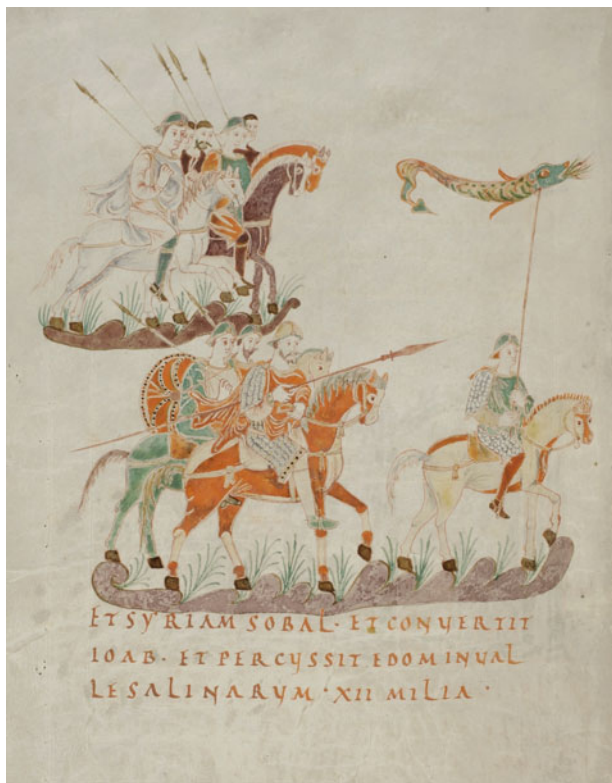 ET SYRIAM SOBAL · ET CONVERTIT
IOAB · ET PERCVSSIT EDOM IN VAL
LE SALINARVM · XII MILIA ·